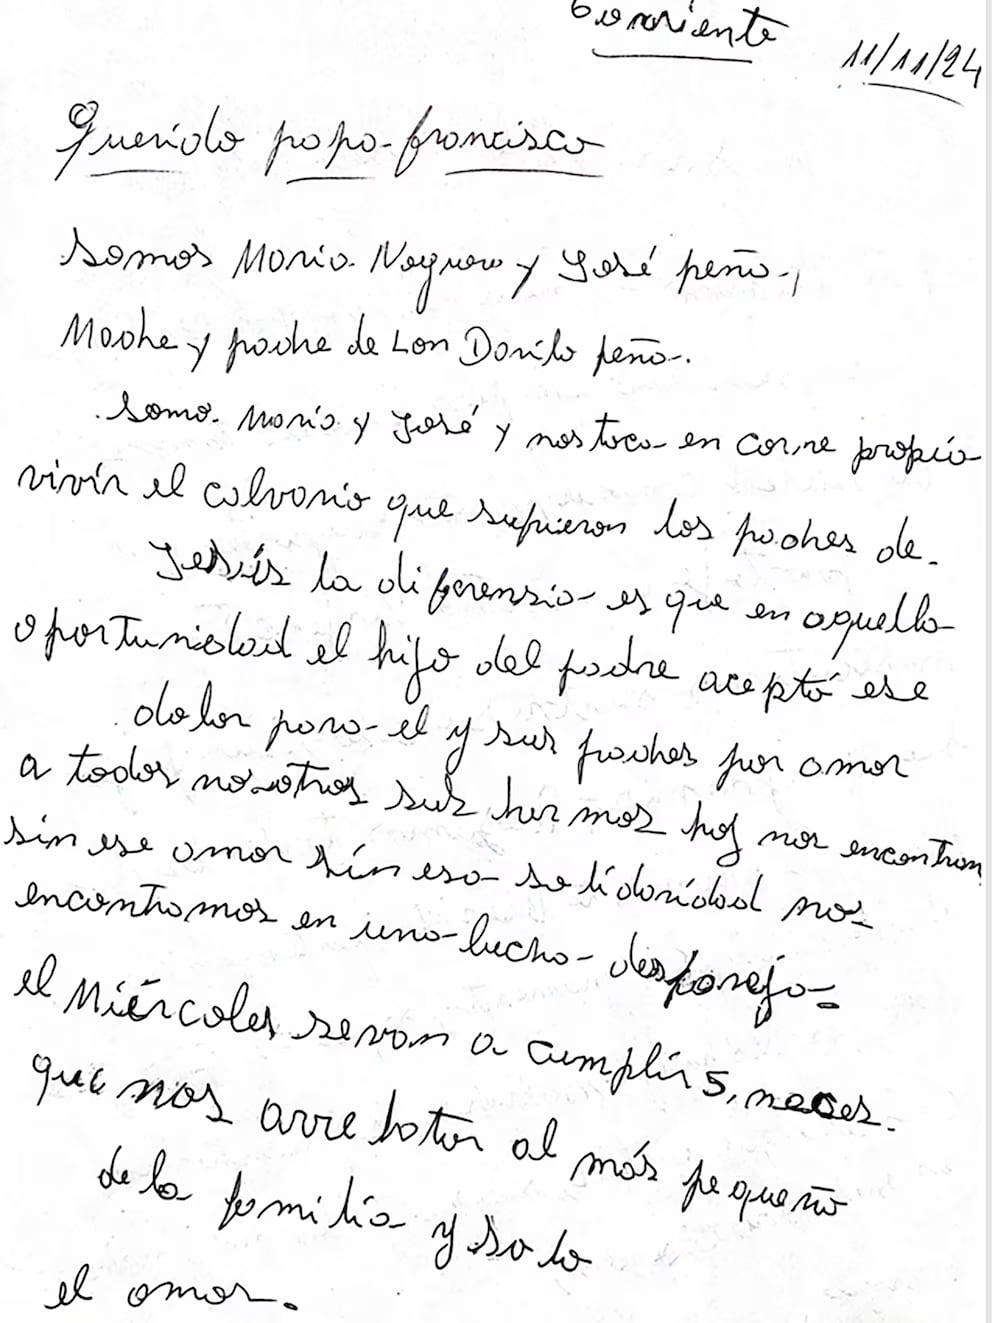 Corriente
11/11/24
Querido papa francisco
Somos Maria Noguera y José peña,
Madre y padre de Loan Danilo peña.
Somo Maria y José y nos toca en carne propia
vivir el calvario que supieron los padres de
Jesús la diferensia es que en aquella
oportunidad el hijo del padre aceptó ese
dolor para el y sus padres por amor
a todos nosotros sus hermos hoy nos encontram
sin ese amor sin esa solidaridad nos
encontramos en una lucha despareja
el Miércoles se van a cumplir 5, meces.
que nos arrebatan al más pequeño
de la familia y solo
el amor.